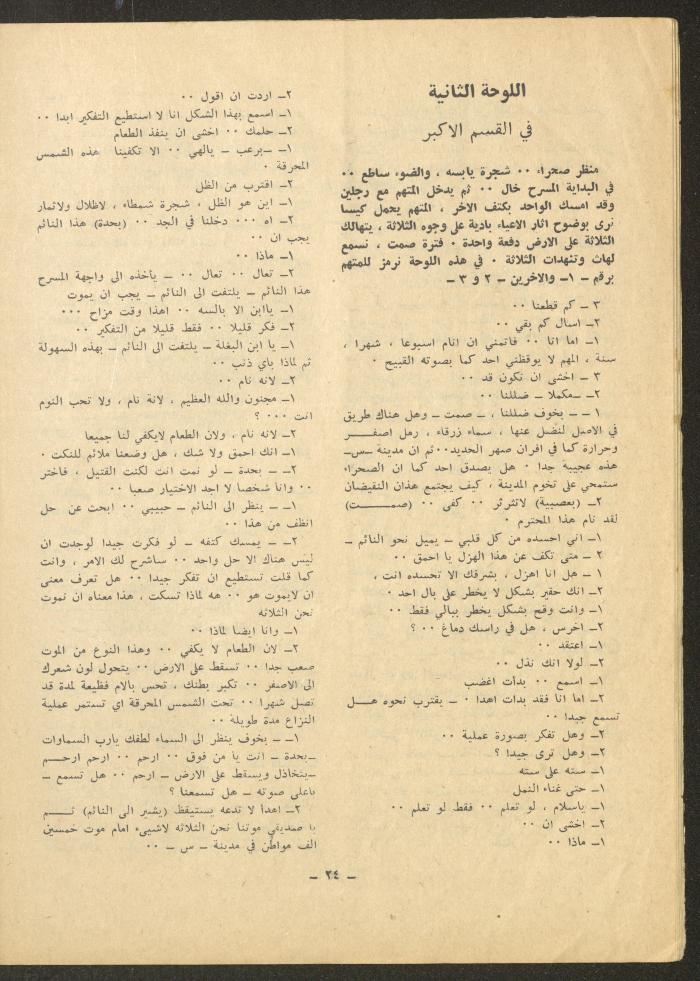 اللوحة الثانية
في القسم الاكبر
منظر صحراء ٠٠ شجرة يابسه ، والضوء ساطع ٠٠
في البداية المسرح خال ٠٠ ثم يدخل المتهم مع رجلين
وقد امسك الواحد بكتف الاخر ، المتهم يحمل كيسا
نرى بوضوح اثار الاعياء بادية على وجوه الثلاثة ، يتهالك
الثلاثة على الارض دفعة واحدة ٠ فترة صمت ، نسمع
لهاث وتنهدات الثلاثة ٠ في هذه اللوحة نرمز للمتهم
برقم ــ ١ــ والاخرين ــ ٢ و ٣ ــ
٣ ــ كم قطعنا ٠٠
٢ــ اسال كم بقي ٠٠
١ــ اما انا ٠٠ فاتمنى ان انام اسبوعا ، شهرا ،
سنة ، المهم لا يوقظني احد كما بصوته القبيح ٠
٣ ــ اخشى ان نكون قد ٠٠
٢ــ ــمكملا ــ ضللنا ٠٠
١ ــ ــ بخوف ضللنا ، ــ صمت ــ وهل هناك طريق
في الاصل لنضل عنها ، سماء زرقاء ، رمل اصفــر
وحرارة كما في افران صهر الحديد٠٠ ثم ان مدينة ــســ
هذه عجيبة جدا ٠ هل يصدق احد كما ان الصحراء
ستمحي على تخوم المدينة ، كيف يجتمع هذان النقيضان
٢ــ (بعصبية) لاتثرثر ٠٠ كفى ٠٠ (صمــــت)
لقد نام هذا المحترم ٠
١ــ اني احسده من كل قلبي ــ يميل نحو النائم ــ
٢ ــ متى تكف عن هذا الهزل يا احمق ٠٠
١ ــ هل انا اهزل ، بشرفك الا تحسده انت ،
٢ــ انك حقير بشكل لا يخطر على بال احد ٠
١ــ وانت وقح بشكل يخطر ببالي فقط ٠٠
٢ــ اخرس ، هل في راسك دماغ ٠٠ ؟
١ــ اعتقد ٠٠
٢ــ لولا انك نذل ٠٠
١ــ اسمع ٠٠ بدأت اغضب
٢ــ اما انا فقد بدات اهدا ٠ ــ يقترب نحوه هــل
تسمع جيدا ٠٠
٢ــ وهل تفكر بصورة عملية ٠٠
٢ــ وهل ترى جيدا ؟
١ــ سته على سته
١ــ حتى غناء النمل
١ــ ياسلام ، لو تعلم ٠٠ فقط لو تعلم ٠٠
٢ــ اخشى ان ٠٠
١ــ ماذا ٠٠
٢ــ اردت ان اقول ٠٠
١ــ اسمع بهذا الشكل انا لا استطيع التفكير ابدا ٠٠
٢ــ حلمك ٠٠ اخشى ان ينفذ الطعام
١ــ ــبرعب ــ يالهي ٠٠ الا تكفينا هذه الشمس
المحرقة ٠
٢ــ اقترب من الظل
١ــ اين هو الظل ، شجرة شمطاء ، لاظلال ولاثمار
٢ــ اه ٠٠٠ دخلنا في الجد ٠٠ (بحدة) هذا النائم
يجب ان ٠٠
١ــ ماذا ٠٠
٢ــ تعال ٠٠ تعال ٠٠ ــ يأخذه الى واجهة المسرح
هذا النائم ــ يلتفت الى النائم ــ يجب ان يموت
١ــ ياابن الا بالسه ٠٠ اهذا وقت مزاح ٠٠٠
٢ــ فكر قليلا ٠٠ فقط قليلا من التفكير ٠٠
١ــ يا ابن البغلة ــ يلتفت الى النائم ــ بهذه السهولة
ثم لماذا باي ذنب ٠٠
٢ــ لانه نام ٠٠
١ــ مجنون والله العظيم ، لانة نام ، ولا تحب النوم
انت ٠٠٠ ؟
٢ــ لانه نام ، ولان الطعام لايكفي لنا جميعا
١ــ انك احمق ولا شك ، هل وضعنا ملائم للنكت ٠
٢ــ ــ بحدة ــ لو نمت انت لكنت القتيل ، فاختر
٠٠ وانا شخصا لا اجد الاختيار صعبا ٠٠
١ــ ــ ينظر الى النائم ــ حبيبي ٠٠ ابحث عن حل
انظف من هذا ٠٠
٢ــ ــ يمسك كتفه ــ لو فكرت جيدا لوجدت ان
ليس هناك الا حل واحد ٠٠ ساشرح لك الامر ، وانت
كما قلت تستطيع ان تفكر جيدا ٠٠ هل تعرف معنى
ان لايموت هو ٠٠ هه لماذا تسكت ، هذا معناه ان نموت
نحن الثلاثه
١ــ وانا ايضا لماذا ٠٠
٢ــ لان الطعام لا يكفي ٠٠ وهذا النوع من الموت
صعب جدا ٠٠ تسقط على الارض ٠٠ يتحول لون شعرك
الى الاصفر ٠٠ تكبر بطنك ، تحس بالام فظيعة لمدة قد
تصل شهرا ٠٠ تحت الشمس المحرقة اي تستمر عملية
النزاع مدة طويلة ٠٠
١ــ ــ بخوف ينظر الى السماء لطفك يارب السماوات
ــبحدة ــ انت يا من فوق ٠٠ ارحم ٠٠ ارحم ارحــم
ــيتخاذل ويسقط على الارض ــ ارحم ٠٠ هل تسمع ــ
باعلى صوته ــ هل تسمعنا ؟
٢ــ اهدا لا تدعه يستيقظ (يشير الى النائم) ثــم
يا صديقي موتنا نحن الثلاثه لاشيىء امام موت خمسين
الف مواطن في مدينة ــ س ــ ٠٠
ــ ٢٤ ــ